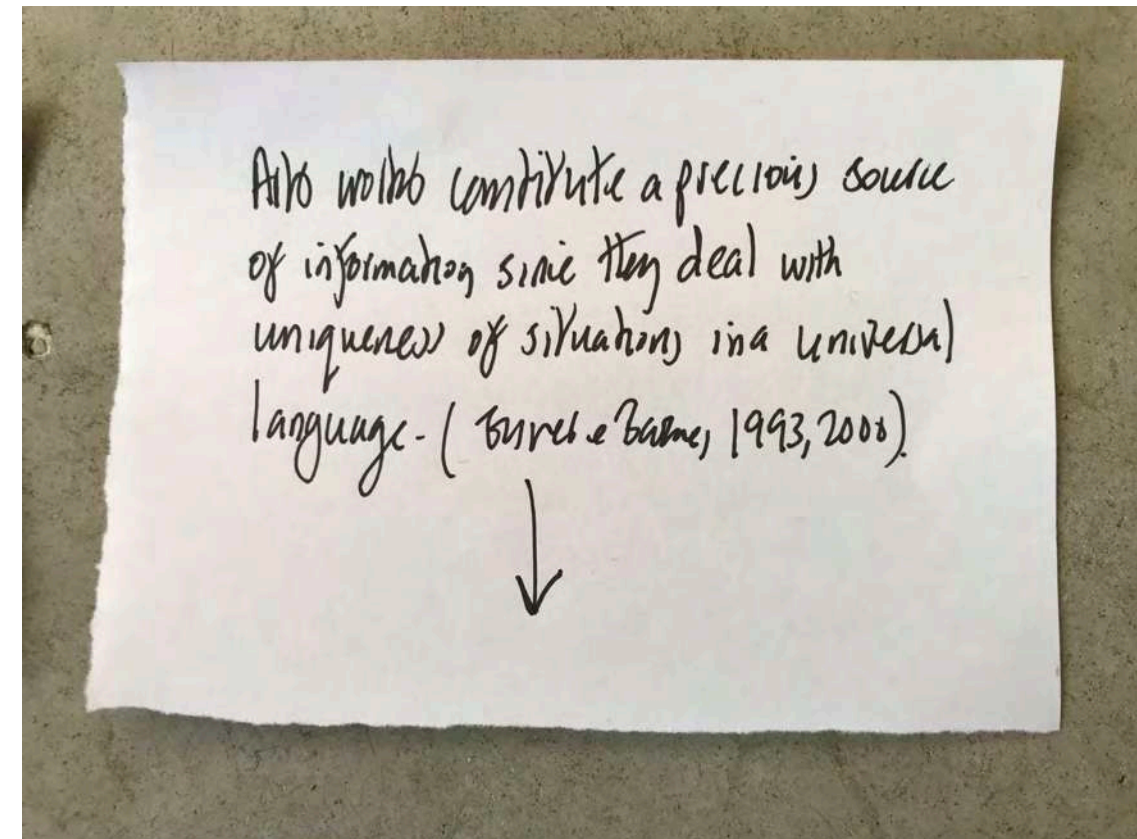 Arts works constitute a precious source
of information since they deal with
uniqueness of situations in a universal
language. ( e 1993, 2000).